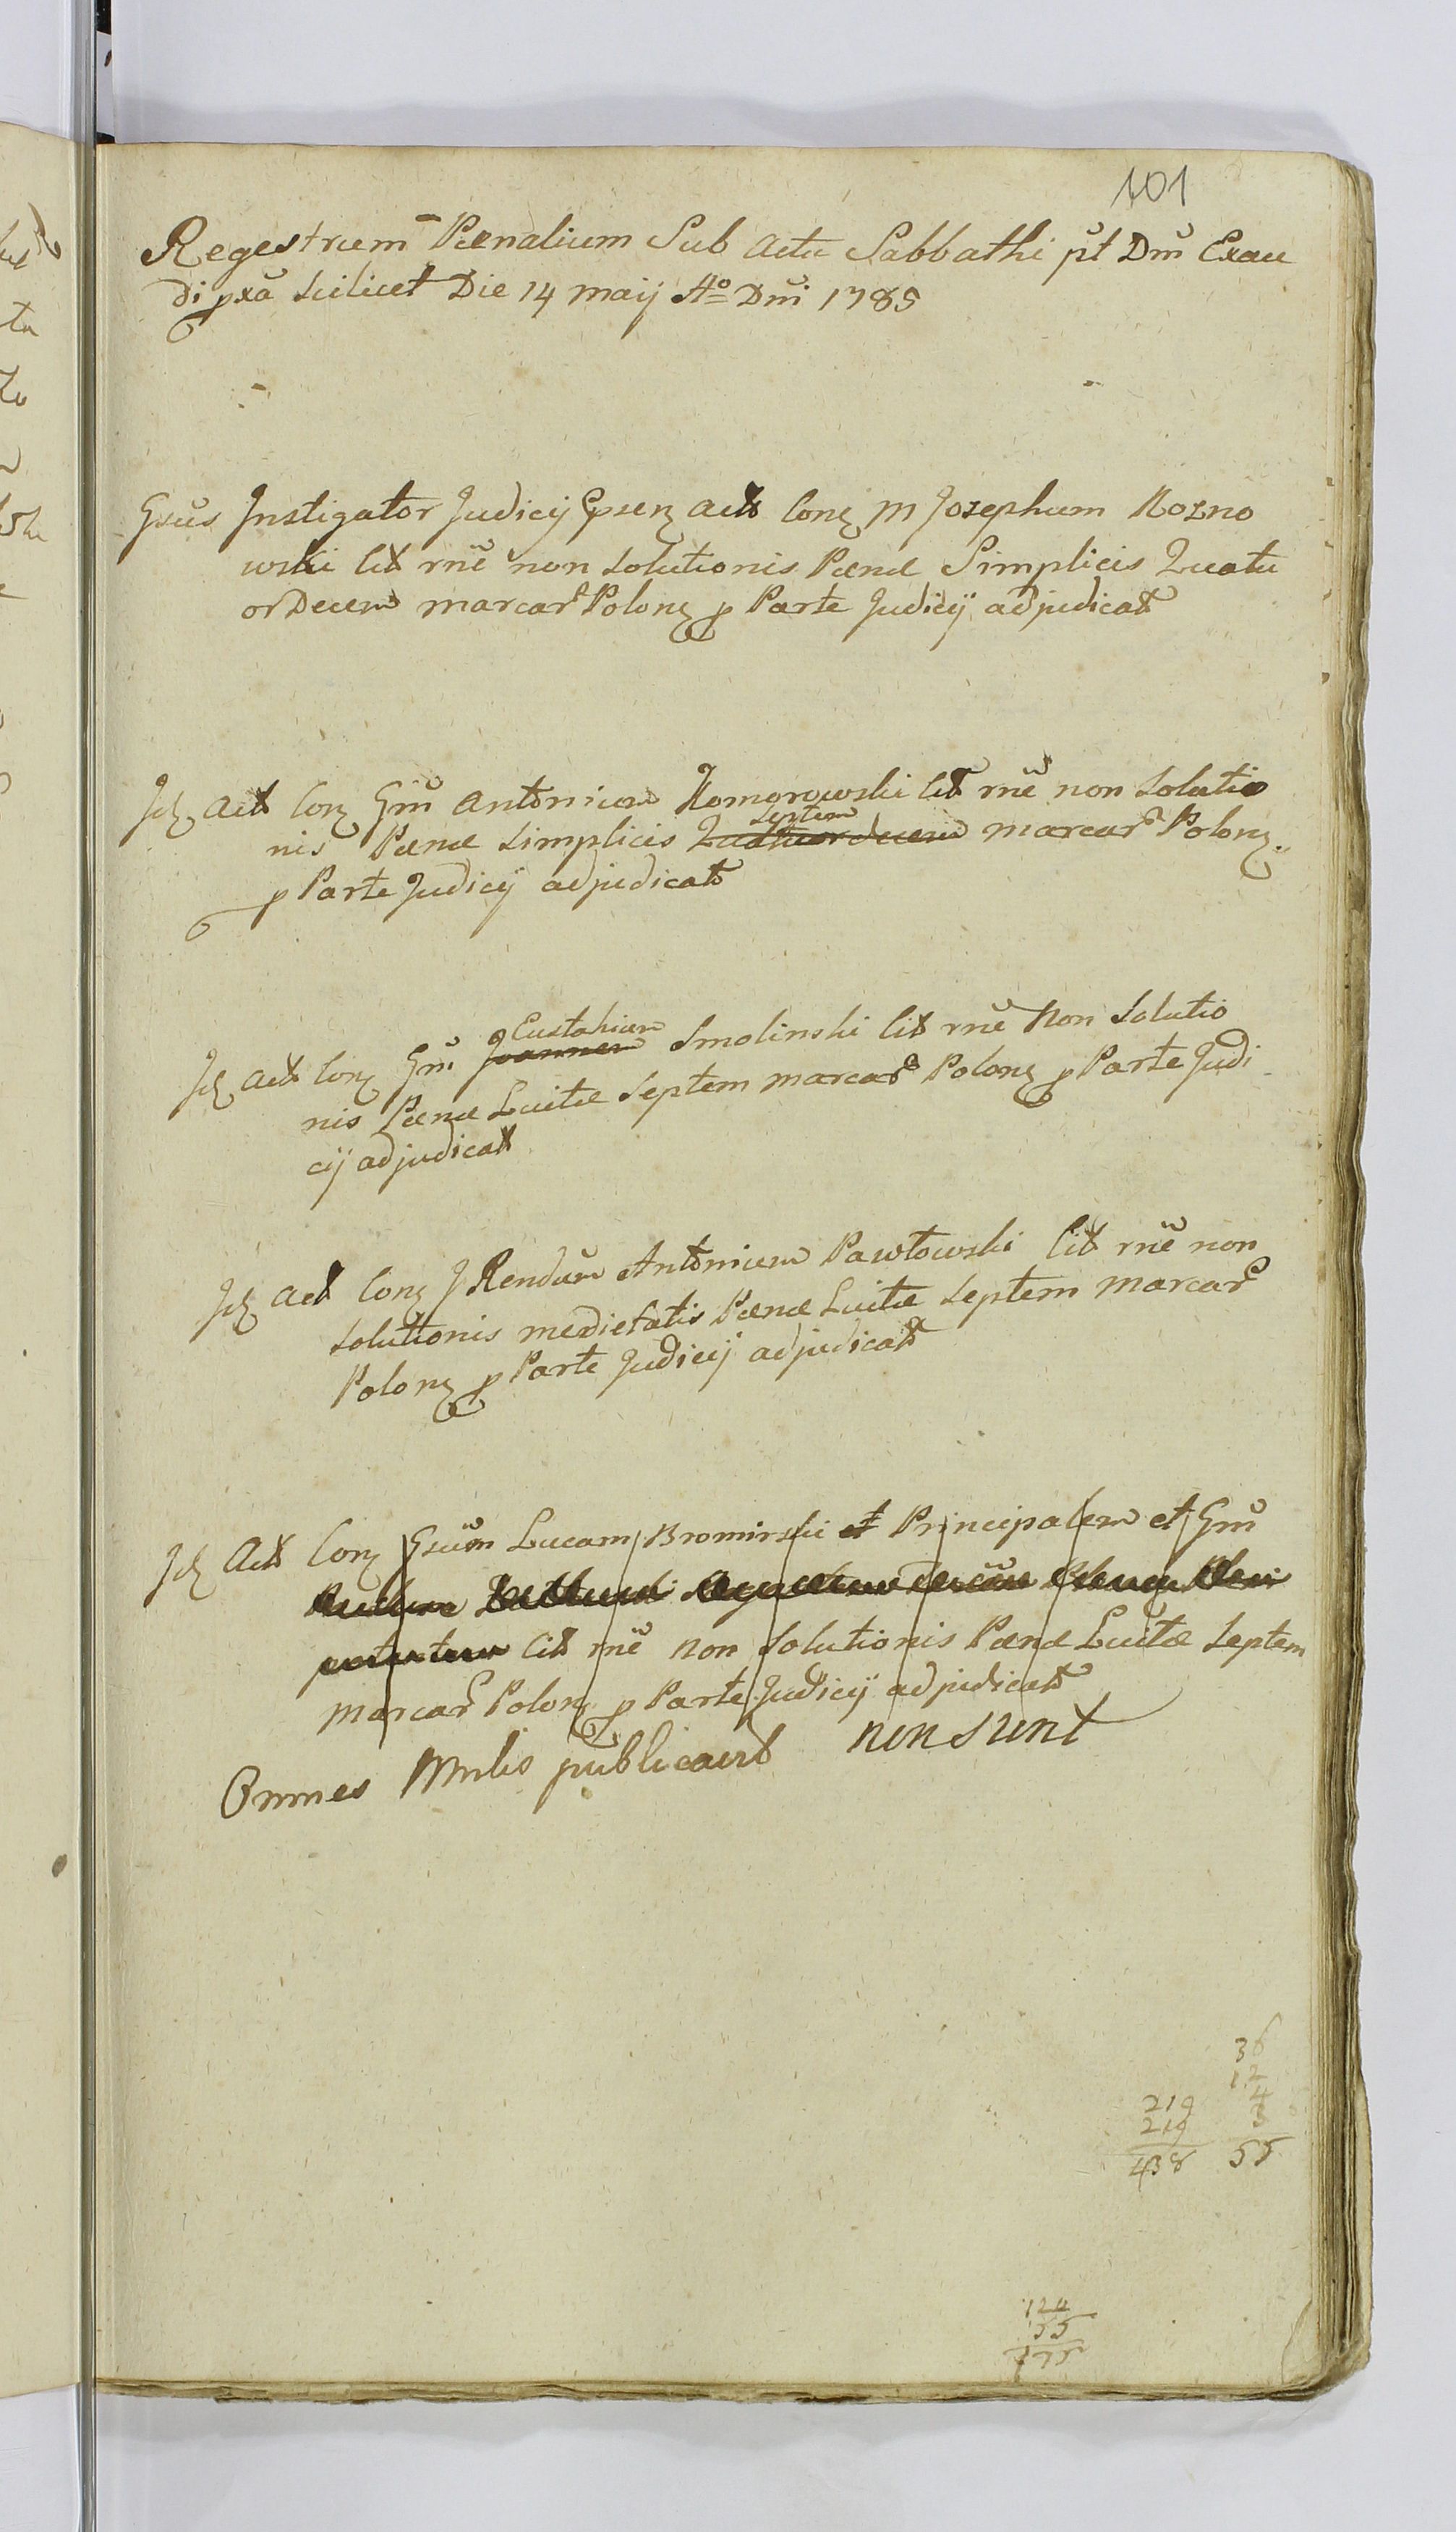 101
Regestrum Pænalium Sub Actu Sabbathi pt Dm̃ Exau
di pxa scilicet Die 14 Maij Aº Dñi 1785
Gsus Instigator Judicij Act Con M Josephum Rozno
wski Cit rne non solutionis Pænæ Simplicis Quatu
or Decem marcar Polon p Parte Judicij adjudicat
Id Act Con Gm Antonium Komorowski Cit rne non solutio
septem
nis Pænæ simplicis Quatuordecem marcar Polon
p Parte Judicij adjudicat
Eustahium
Id Act Con Gm Joannem Smolinski Cit rne Non Solutio
nis Pænæ Luitæ Septem marcar Polon p Parte Judi
cij adjudicat
Id Act Con J Rendum Antonium Pawłowski Cit rne non
solutionis medietatis Pænæ Luitæ septem marcar
Polon p Parte Judicij adjudicat
Id Act Con Gsum Lucam Bromirski et Principalem et Gm
Cit rne non solutionis Pænæ Luitæ septem
marcar Polon p Parte Judicij adjudicat
Omnes non sunt
36
12
219 4
219 3
438 55
55